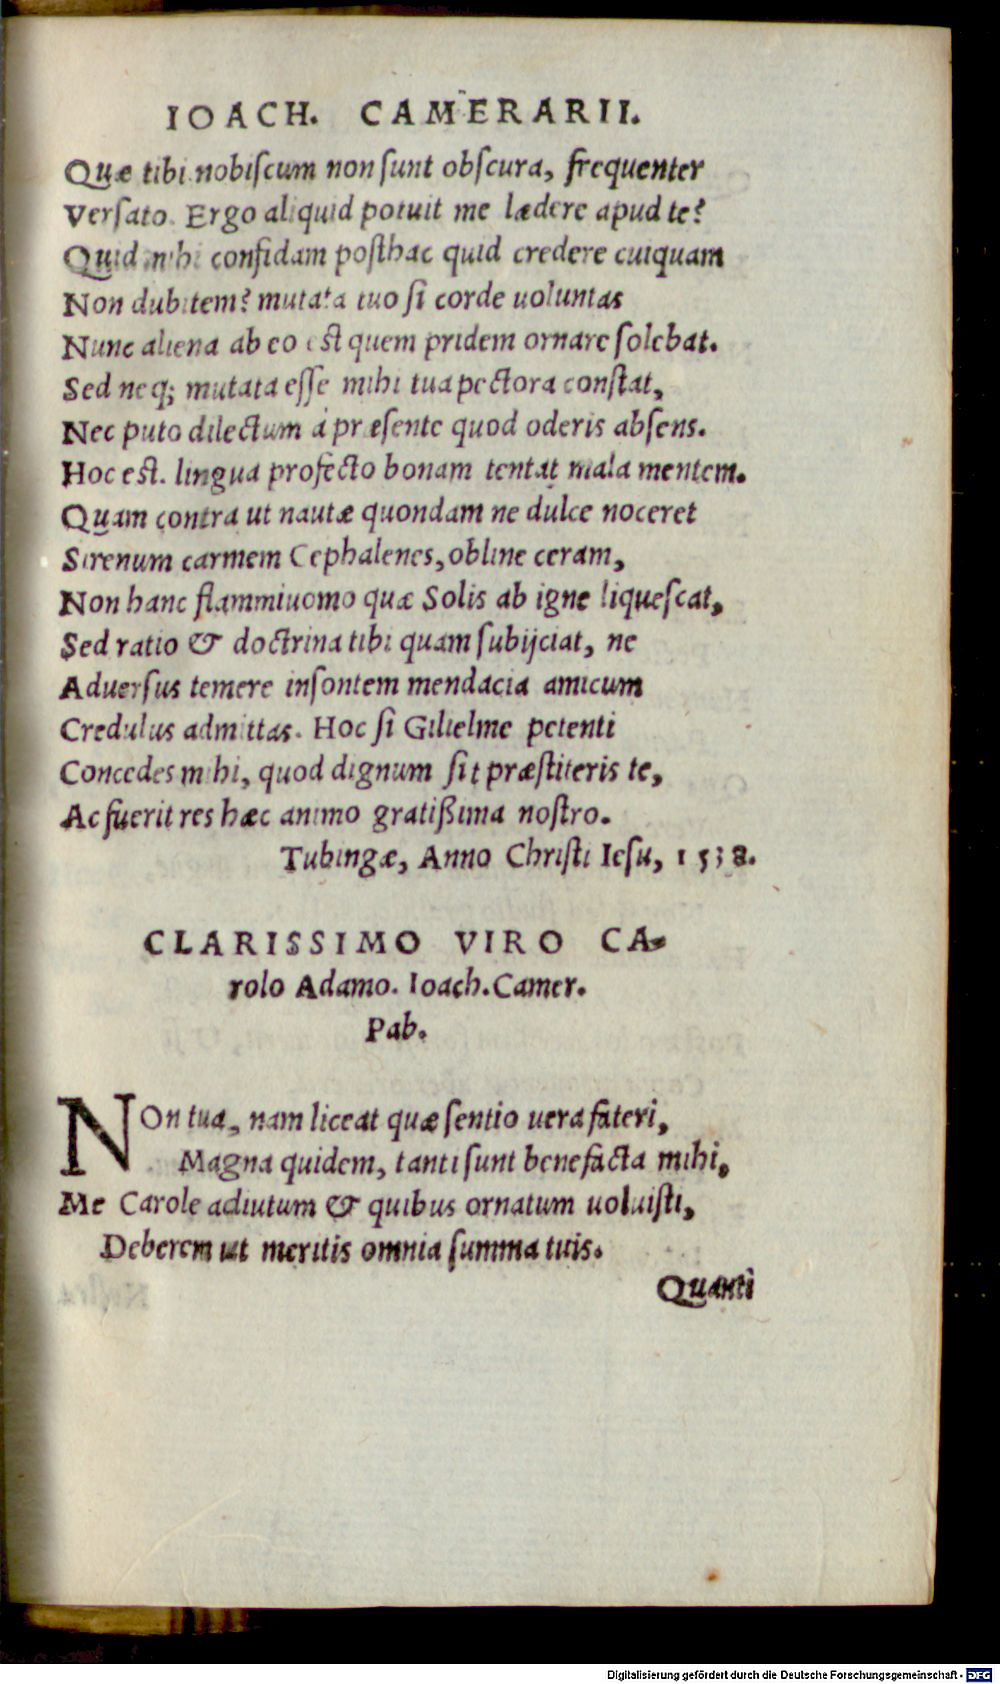 IOACH. CAMERARII.
Quæ tibi nobiſcum non ſunt obſcura, frequenter
Verſato. Ergo aliquid potuit me lædere apud te?
Quid mihi confidam poſthac quid credere cuiquam
Non dubitem? mutata tuo ſi corde uoluntas
Nunc aliena ab eo eſt quem pridem ornare ſolebat.
Sed neq; mutata eſſe mihi tua pectora conſtat,
Nec puto dilectum á præſente quod oderis abſens.
Hoc eſt. lingua profecto bonam tentat mala mentem.
Quam contra ut nautæ quondam ne dulce noceret
Sirenum carmem Cephalenes, obline ceram,
Non hanc flammiuomo quæ Solis ab igne liqueſcat,
Sed ratio & doctrina tibi quam ſubijciat, ne
Aduerſus temere inſontem mendacia amicum
Credulus admittas. Hoc ſi Gilielme petenti
Concedes mihi, quod dignum ſit præſtiteris te,
Ac fuerit res hæc animo gratißima noſtro.
Tubingæ, Anno Chriſti Ieſu, 1538.
CLARISSIMO VIRO CA-
rolo Adamo. Ioach. Camer.
Pab.
NOn tua, nam liceat quæ ſentio uera fateri,
Magna quidem, tanti ſunt benefacta mihi,
Me Carole adiutum & quibus ornatum uoluiſti,
Deberem ut meritis omnia ſumma tuis.
Quanti
Digitalisierung gefördert durch die Deutsche Forschungsgemeinschaft - DFG